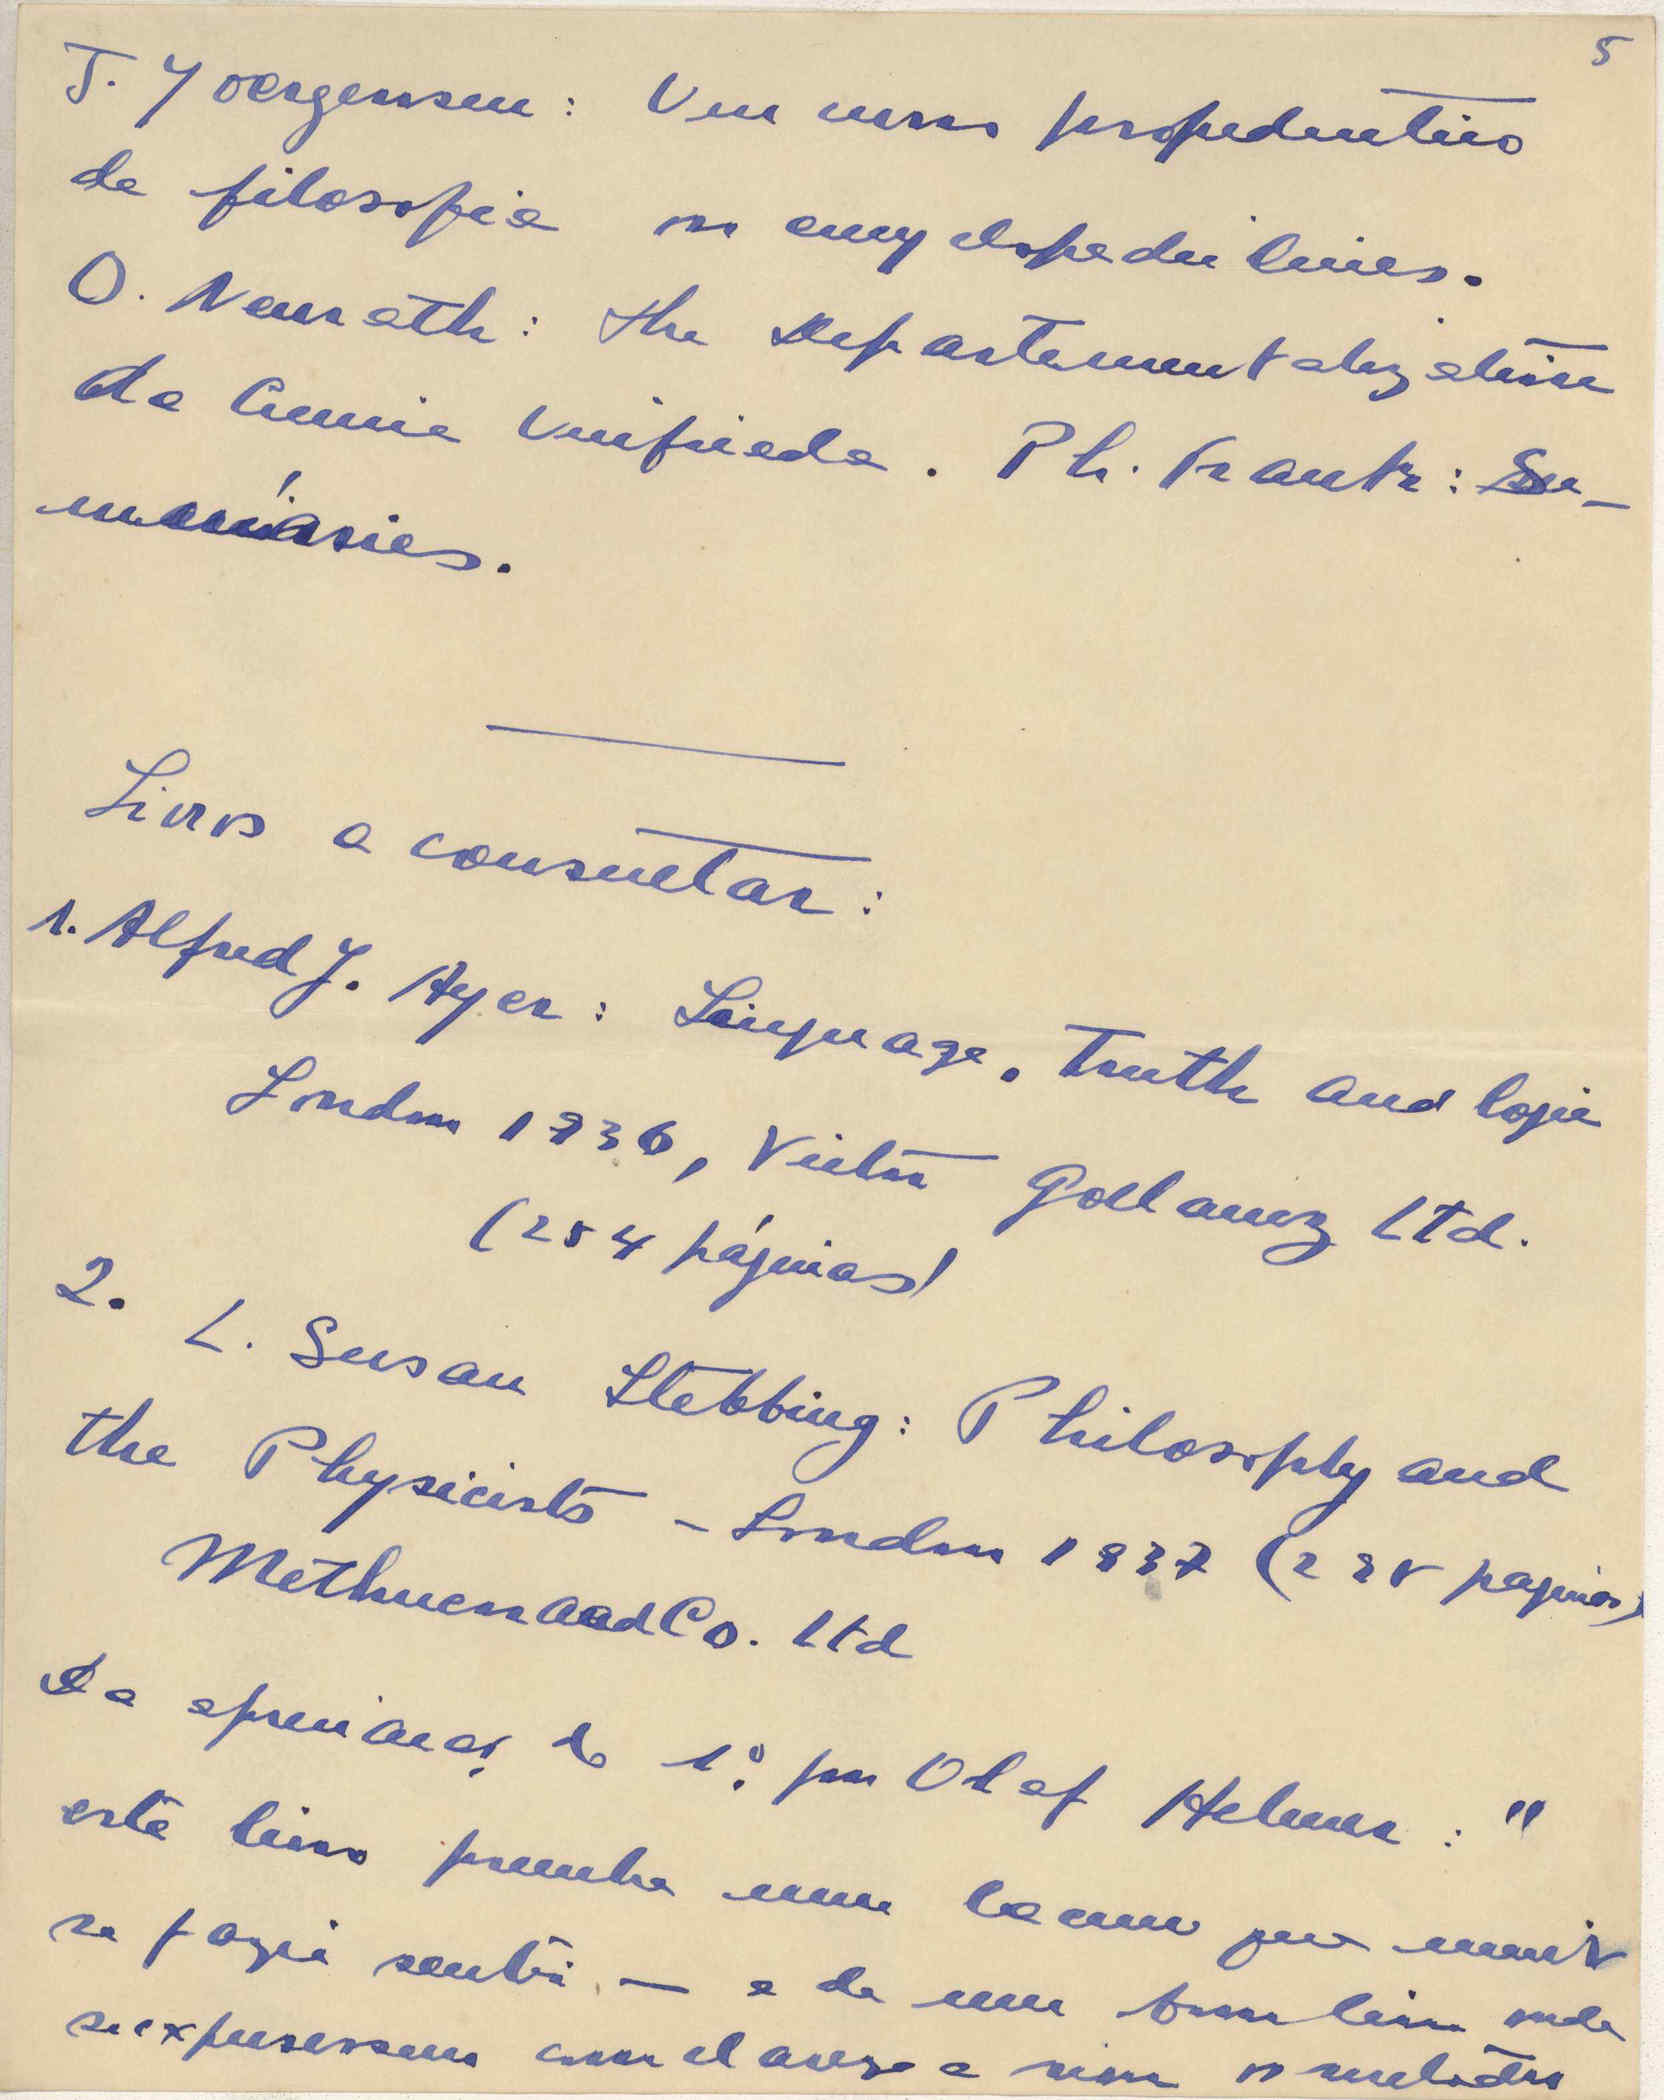 5
J. Joergensen: Um curso propedeutico
de filosofia
O. Neurath: the Departementalization
da Ciencia Unificada. Ph. Frank: Su-
mários.
Livros a consultar:
1. Alfred J. Ayer: Language, Truth and logic
London 1936, Victor Gollancz Ltd.
(254 páginas)
2.
L. Susan Stebbing: Philosophy and
the Physicists - London 1937 (295 paginas)
Methuen and Co. Ltd
Da apreciação do 1º por Olaf Helmer: "
este livro preenche uma lacuna que muito
se fazia sentir — a de um bom livro onde
se expusessem com clareza e rigor os resultados